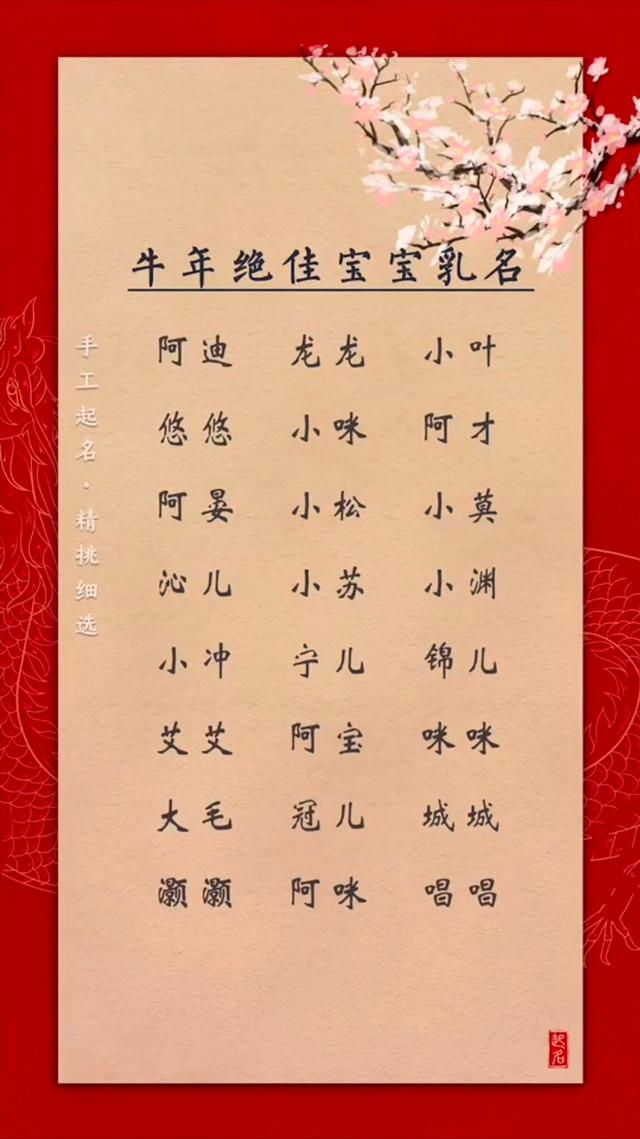 牛年绝佳宝宝乳名
手工起名·精挑细选
阿迪 龙龙 小叶
悠悠 小咪 阿才
阿晏 小松 小莫
沁儿 小苏 小渊
小冲 宁儿 锦儿
艾艾 阿宝 咪咪
大毛 冠儿 城城
灏灏 阿咪 唱唱
起名